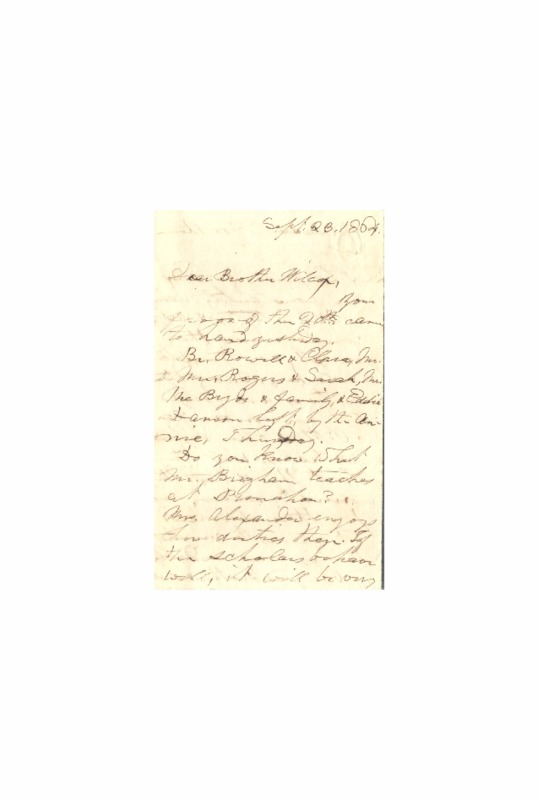 Sept. 23. 1864.
Dear Brother Wilcox,
Your
of the 20th came
to hand yesterday.
Br. Rowell & Clara, Mr.
Mrs. Rogers & Sarah, Mr.
Mc Byde & family, &
left by the An-
nie, Thursday.
Do you know what
Mr. Brigham teaches
at Punahou?
Mrs. Alexander enjoys
her duties there. If
the scholars behave
well, it will be very